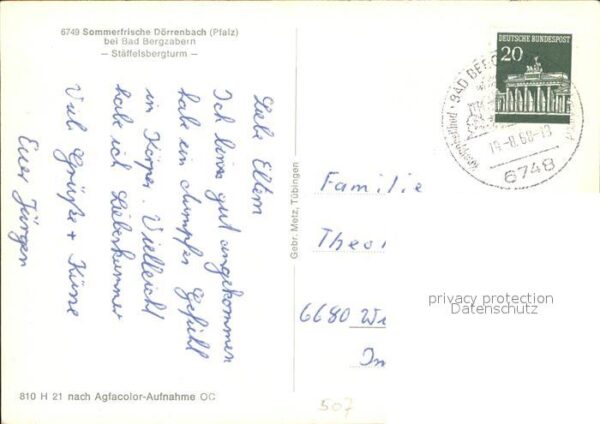 6749 Sommerfrische Dörrenbach (Pfalz)
bei Bad Bergzabern
— Stäffelsbergturm —
Liebe Eltern
Ich bin gut angekommen
habe ein dumpfes Gefühl
im Körper. Vielleicht
habe ich Lieberkummer
Viele Grüße + Küsse
Euer Jürgen
810 H 21 nach Agfacolor-Aufnahme OC
Gebr. Metz, Tübingen
DEUTSCHE BUNDESPOST
20
BAD BERG
6748
Familie
Theo
6680 Wi
Im
privacy protection
Datenschutz
507